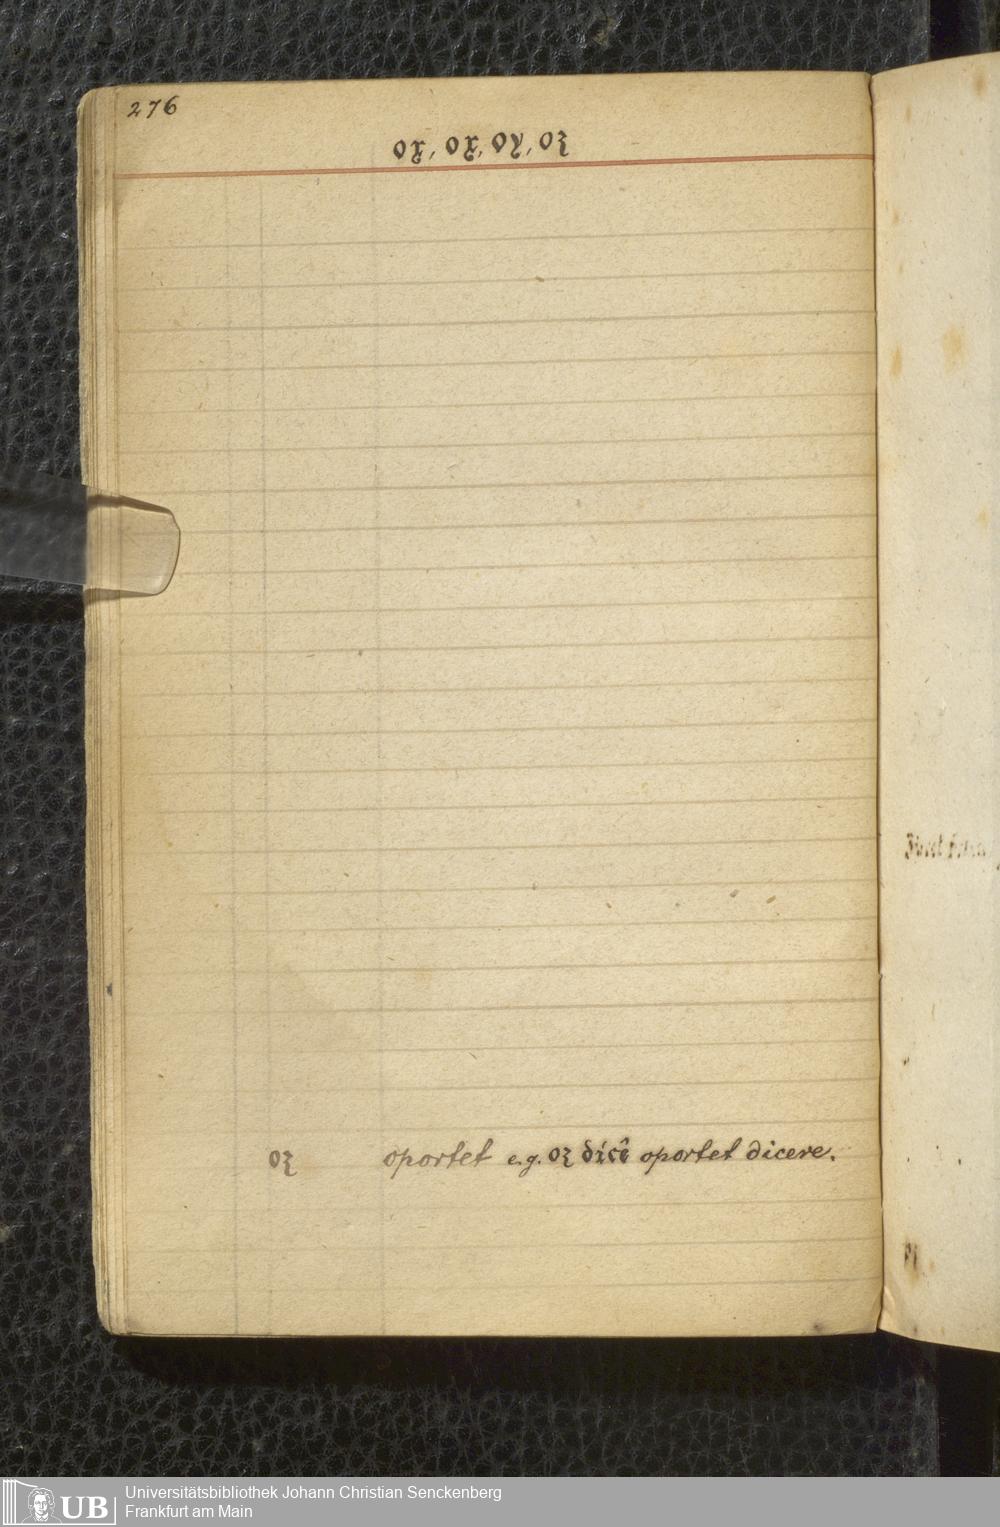 276
ox, ox, oy, oʒ
oʒ oportet e.g. oʒ dícê oportet dicere.
UB
Universitätsbibliothek Johann Christian Senckenberg
Frankfurt am Main